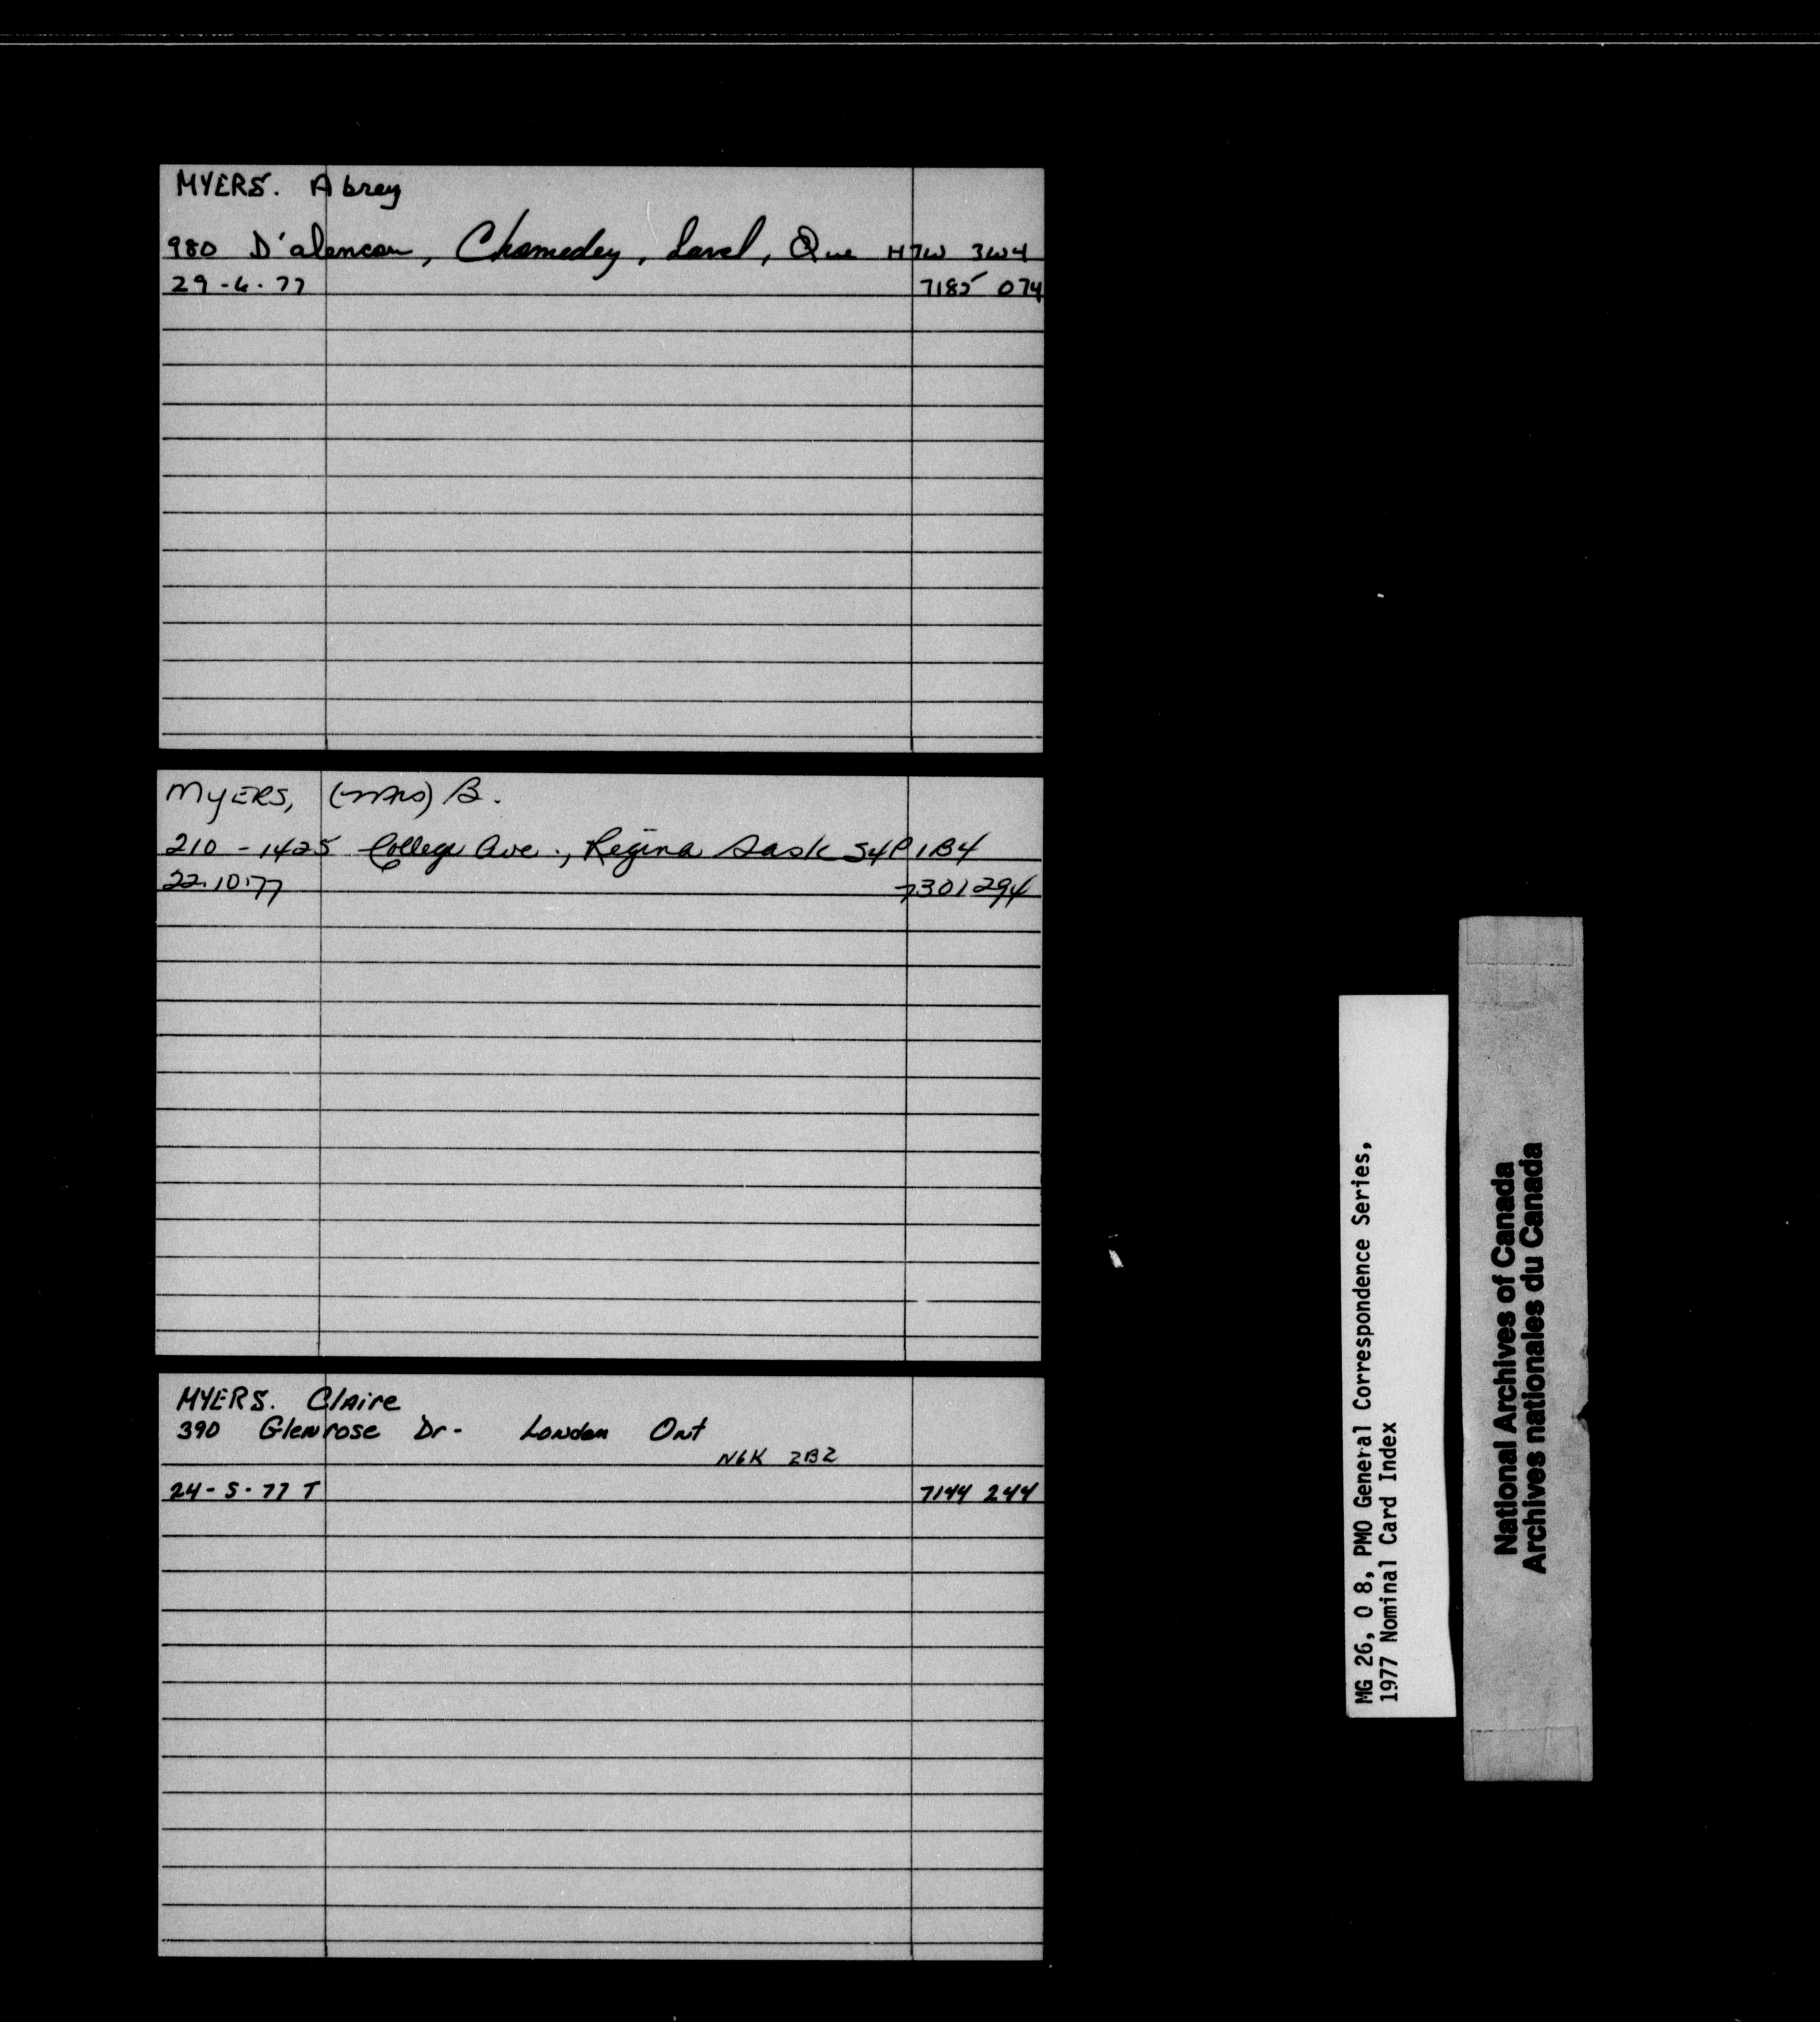 MYERS. Abrey
980 D'alencon, Chomedey, Laval, Que H7W 3W4
29-6-77 7185 074
MYERS, (Mrs) B.
210-1425 College Ave., Regina Sask S4P1B4
22.10.77 7301294
MYERS. Claire
390 Glenrose Dr- London Ont
N6K 2B2
24-5-77 T 7144 244
MG 26, O 8, PMO General Correspondence Series,
1977 Nominal Card Index
National Archives of Canada
Archives nationales du Canada